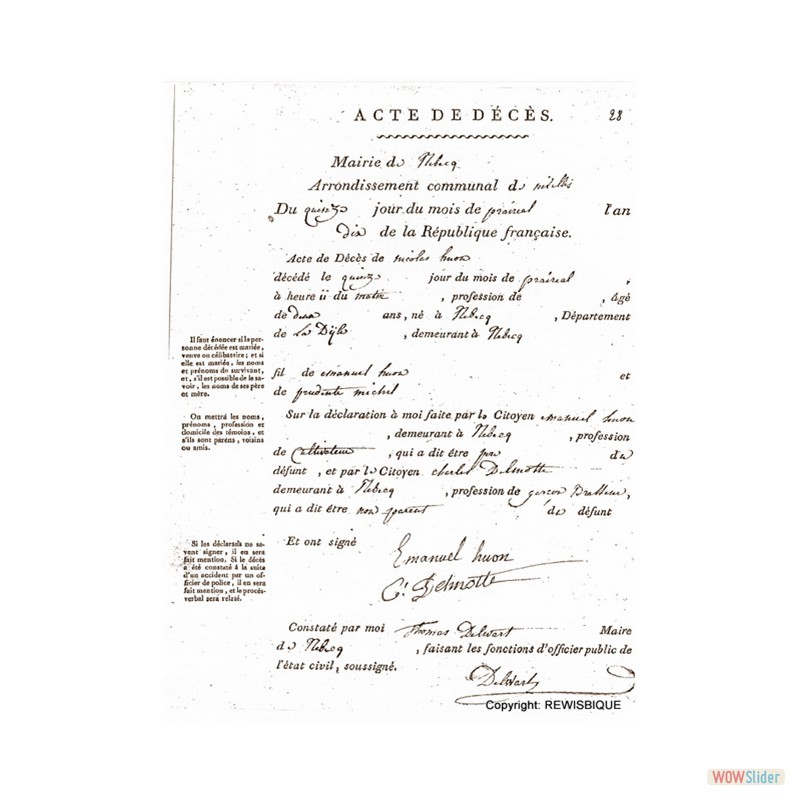 ACTE DE DÉCÈS. 28
Mairie de Rebecq
Arrondissement communal de nivelles
Du quinze jour du mois de prairial l'an
dix de la République française.
Acte de Décès de nicolas huon
décédé le quinze jour du mois de prairial ,
à heure ii du matin , profession de , âgé
de deux ans, né à Rebecq , Département
de La Dÿle , demeurant à Rebecq
fil de emanuel huon et
de prudente michel
Sur la déclaration à moi faite par le Citoyen emanuel huon
, demeurant à Rebecq , profession
de Cultivateur , qui a dit être du
défunt , et par le Citoyen charles Delmotte
demeurant à Rebecq , profession de garcon Brasseur,
qui a dit être non parent de défunt
Et ont signé
Emanuel huon
C. Delmotte
Constaté par moi Thomas Delwart Maire
de Rebecq , faisant les fonctions d'officier public de
l'état civil, soussigné.
Delwart
Il faut énoncer si la per-
sonne décédée est mariée,
veuve ou célibataire; et si
elle est mariée, les noms
et prénoms du survivant,
et, s'il est possible de le sa-
voir, les noms de ses père
et mère.
On mettra les noms,
prénoms, profession et
domicile des témoins, et
s'ils sont parens, voisins
ou amis.
Si les déclarans ne sa-
vent signer, il en sera
fait mention. Si le décès
a été constaté à la suite
d'un accident par un of-
ficier de police, il en sera
fait mention, et le procès-
verbal sera relaté.
Copyright: REWISBIQUE
WOWSlider